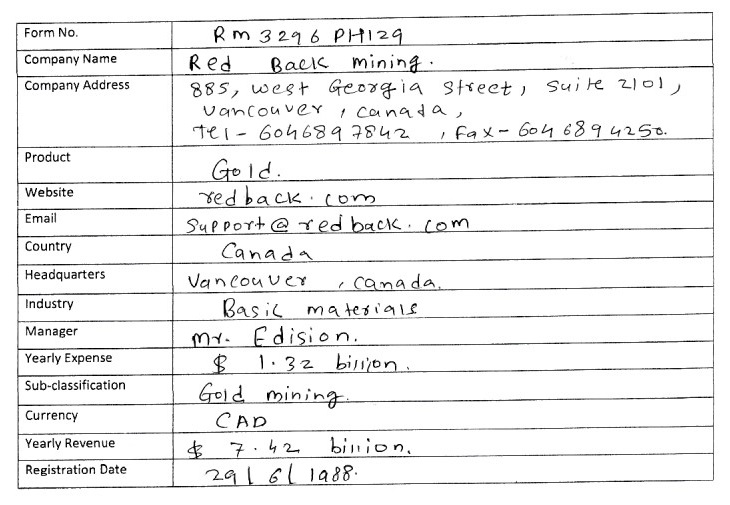 Form No. Rm 3296 PH129
Company Name Red Back mining.
Company Address 885, west Georgia street, suite 2101,
vancouver, canada,
tel - 6046897842, fax - 6046894250.
Product Gold.
Website redback.com
Email support@redback.com
Country Canada
Headquarters Vancouver, canada.
Industry Basic materials
Manager mr. Edision.
Yearly Expense $ 1.32 billion.
Sub-classification Gold mining.
Currency CAD
Yearly Revenue $ 7.42 billion.
Registration Date 29/6/1988.